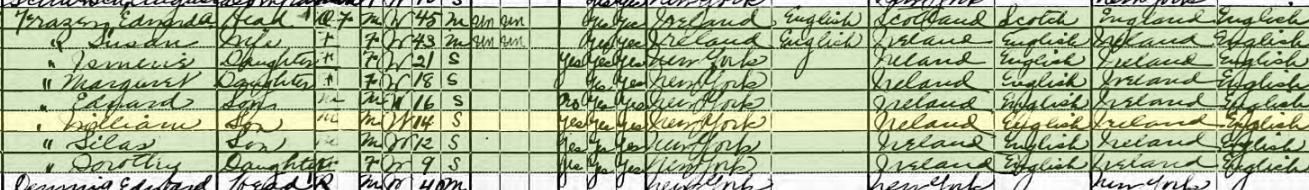 Edward Head R M W 45 M un un Yes Yes Ireland English Scotland Scotch England English
" Susan Wife F W 43 M un un Yes Yes Ireland English Ireland English Ireland English
" Daughter F W 21 S Yes Yes Yes New York Ireland English Ireland English
" Margaret Daughter F W 18 S Yes Yes New York Ireland English Ireland English
" Edward Son M W 16 S No Yes Yes New York Ireland English Ireland English
" William Son M W 14 S Yes Yes Yes New York Ireland English Ireland English
" Silas Son M W 12 S Yes Yes Yes New York Ireland English Ireland English
" Dorothy Daughter F W 9 S Yes Yes Yes New York Ireland English Ireland English
Dennis Edward Head R M W New York New York New York